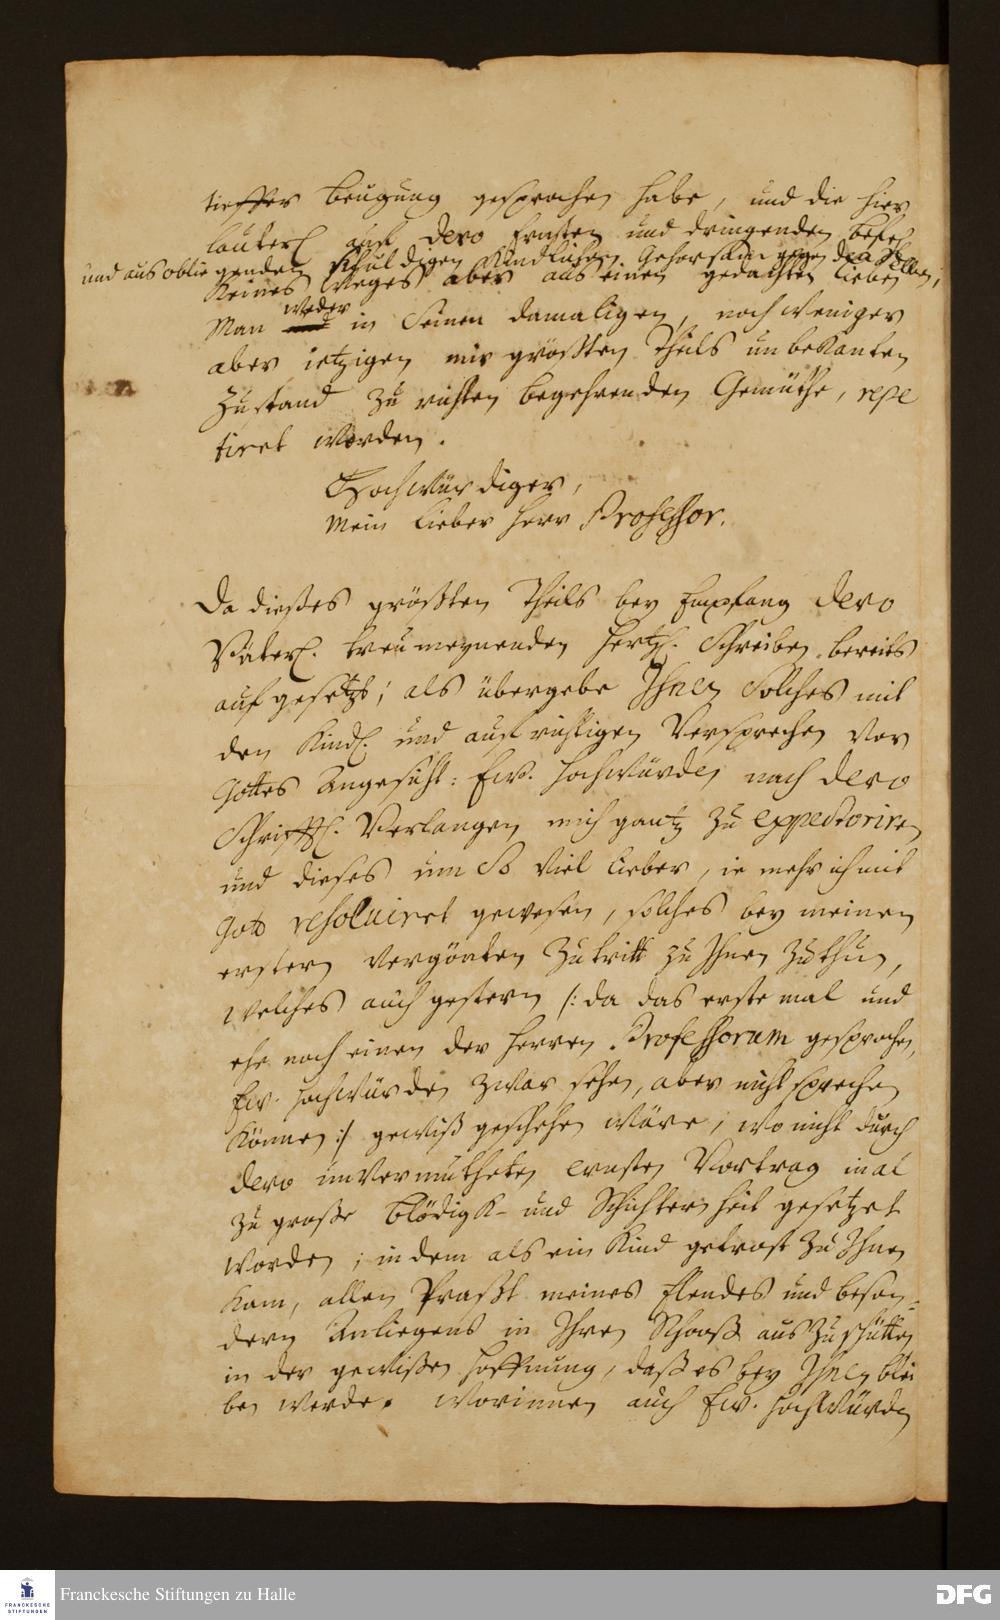 tieffer Beugung gesprochen habe, und die hier
lauterl. auf Dero ernsten und dringenden Befehl
und aus obliegenden schuldigen Kindlichen Gehorsam gegen dieselben,
keines Weges aber aus einem gedachten lieben
Man weder in Seinen damaligen, noch weniger
aber ietzigen mir größten Theils unbekanten
Zustand zu richten begehrenden Gemüthe, repe
tiret worden.
Hochwürdiger,
Mein lieber Herr Professor.
Da dießes größten Theils bey Empfang Dero
Väterl. treumeynenden Hertzl. Schreiben bereits
aufgesetzt; als übergebe Ihnen Solches mit
den Kindl. und aufrichtigen Versprechen vor
Gottes Angesicht: Ew. Hochwürden nach Dero
Schrifftl. Verlangen mich gantz zu expectoriren
und dieses um So viel lieber, ie mehr ich mit
Gott resolviret gewesen, solches bey meinen
erstern vergönten Zutritt zu Ihnen zu thun,
welches auch gestern /: da das erste mal und
ehe noch einen der Herren Professorum gesprochen,
Ew. Hochwürden zwar sehen, aber nicht sprechen
können :/ gewiß geschehen wäre, wo nicht durch
Dero unvermutheten ernsten Vortrag in al
zu große Blödigk- und Schichternheit gesetzet
worden; in dem als ein Kind getrost zu Ihnen
kam, allen Praßt meines Elendes und beson-
dern Anliegens in Ihren Schooß auszuschütten
in der gewißen Hoffnung, daß es bey Ihnen blei
ben werde. Worinnen auch Ew. Hochwürden
Franckesche Stiftungen zu Halle
FRANCKESCHE
STIFTUNGEN
DFG